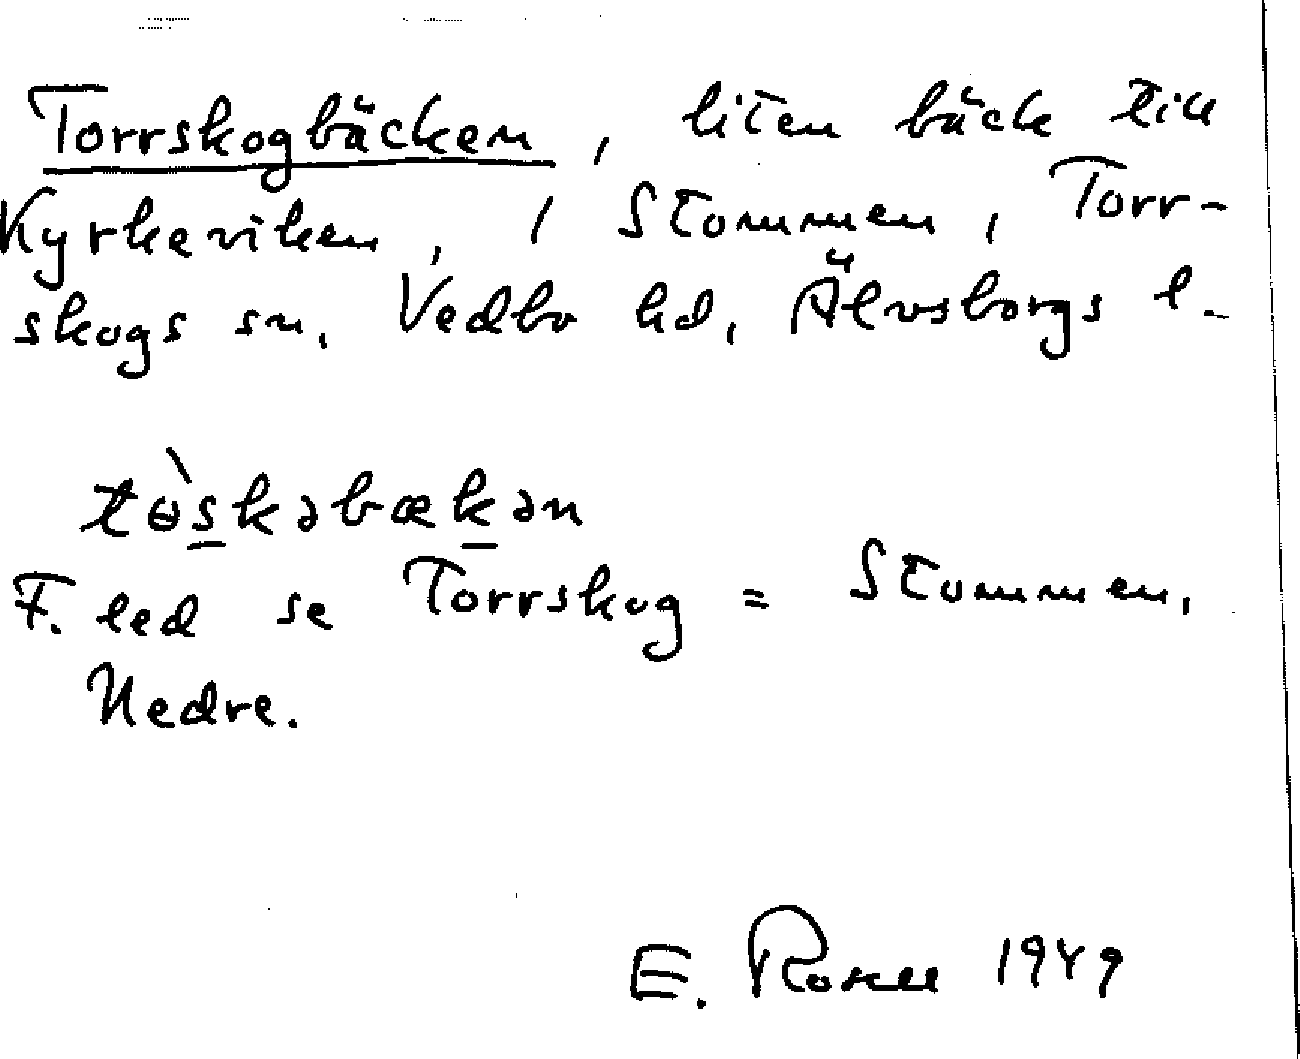 Torrskogbäcken, liten bäck till
Kyrkeviken, 1 Stommen, Torr-
skogs sn, Vedbo hd, Älvsborgs l.
tɵ̀s̲kəbæk̲ən
F. led se Torrskog = Stommen,
Nedre.
E. Rosell 1949